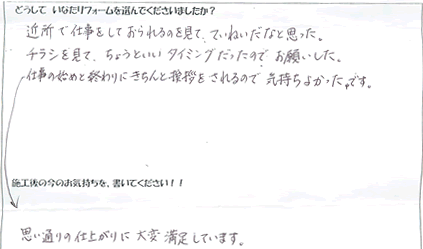 どうして いなたリフォームを選んでくださいましたか?
近所で仕事をしておられるのを見て、ていねいだなと思った。
チラシを見て、ちょうどいいタイミングだったのでお願いした。
仕事の始めと終わりにきちんと挨拶をされるので気持ちよかったです。
施工後の今のお気持ちを、書いてください!!
思い通りの仕上がりに大変満足しています。